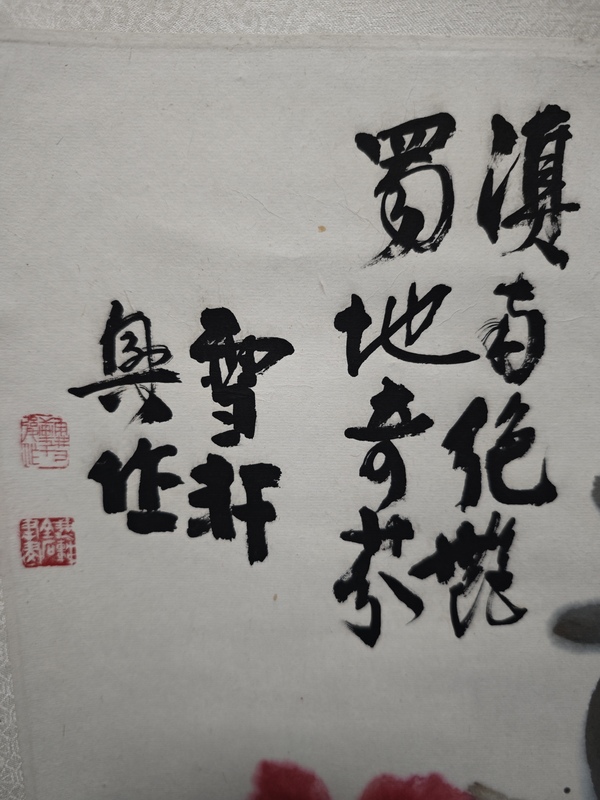 滇南绝艳
蜀地奇芬
雪轩
興作